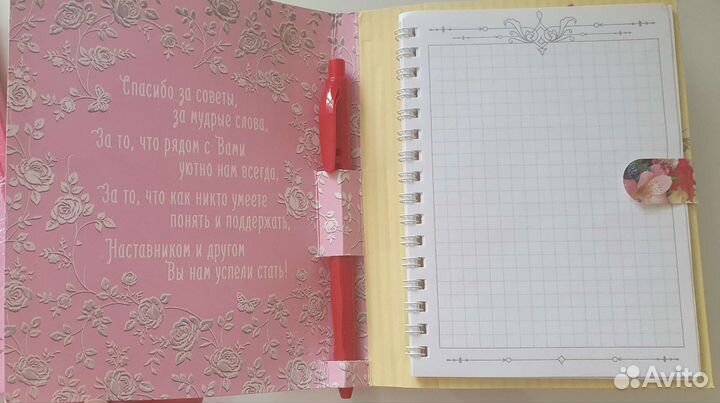 Спасибо за советы,
за мудрые слова,
За то, что рядом с Вами
уютно нам всегда,
За то, что как никто умеете
понять и поддержать,
Наставником и другом
Вы нам успели стать!
Avito